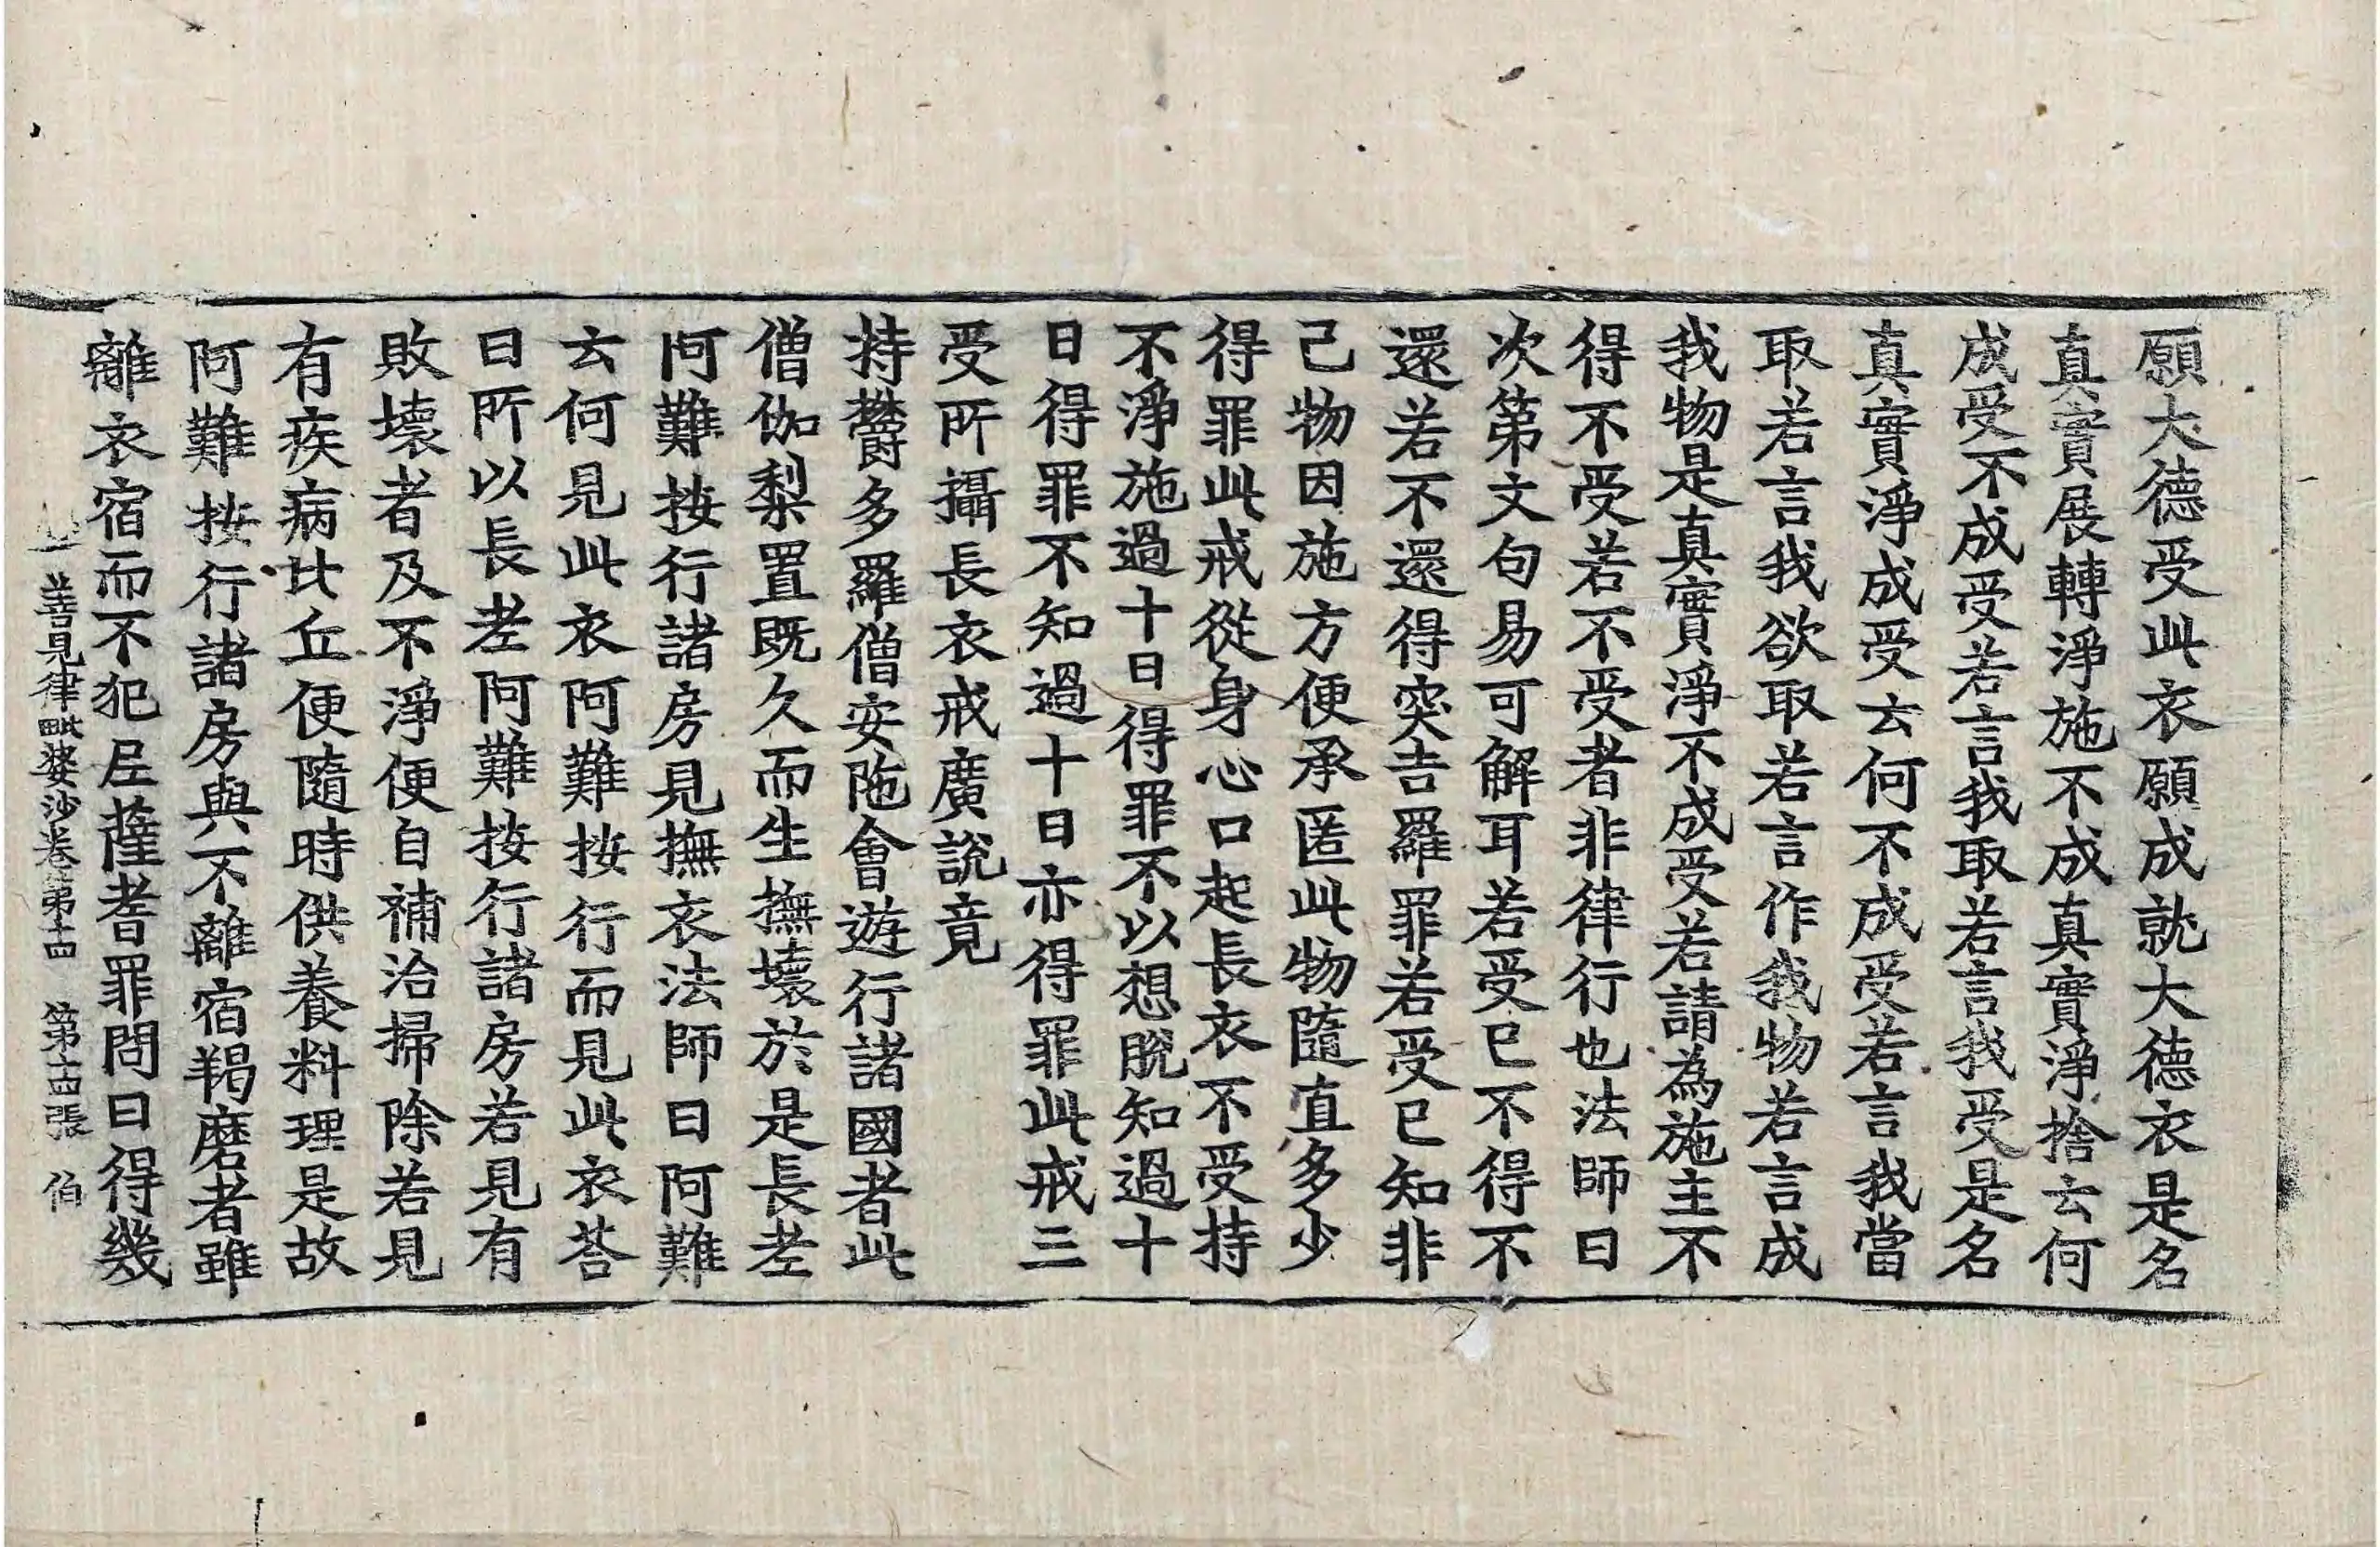 願大德受此衣願成就大德衣是名
真實展轉淨施不成真實淨捨云何
成受不成受若言我取若言我受是名
真實淨成受云何不成受若言我當
取若言我欲取若言作我物若言成
我物是真實淨不成受若請為施主不
得不受若不受者非律行也法師曰
次第文句易可解耳若受已不得不
還若不還得突吉羅罪若受已知非
己物因施方便承匿此物隨直多少
得罪此戒從身心口起長衣不受持
不淨施過十日得罪不以想脫知過十
日得罪不知過十日亦得罪此戒三
受所攝長衣戒廣說竟
持欝多羅僧安陁會遊行諸國者此
僧伽梨置既久而生撫壞於是長老
阿難按行諸房見撫衣法師曰阿難
云何見此衣阿難按行而見此衣荅
曰所以長老阿難按行諸房若見有
敗壞者及不淨便自補治掃除若見
有疾病比丘便隨時供養料理是故
阿難按行諸房與不離宿羯磨者雖
離衣宿而不犯尼薩耆罪問曰得幾
善見律毗婆沙卷第十四 第十四張 伯